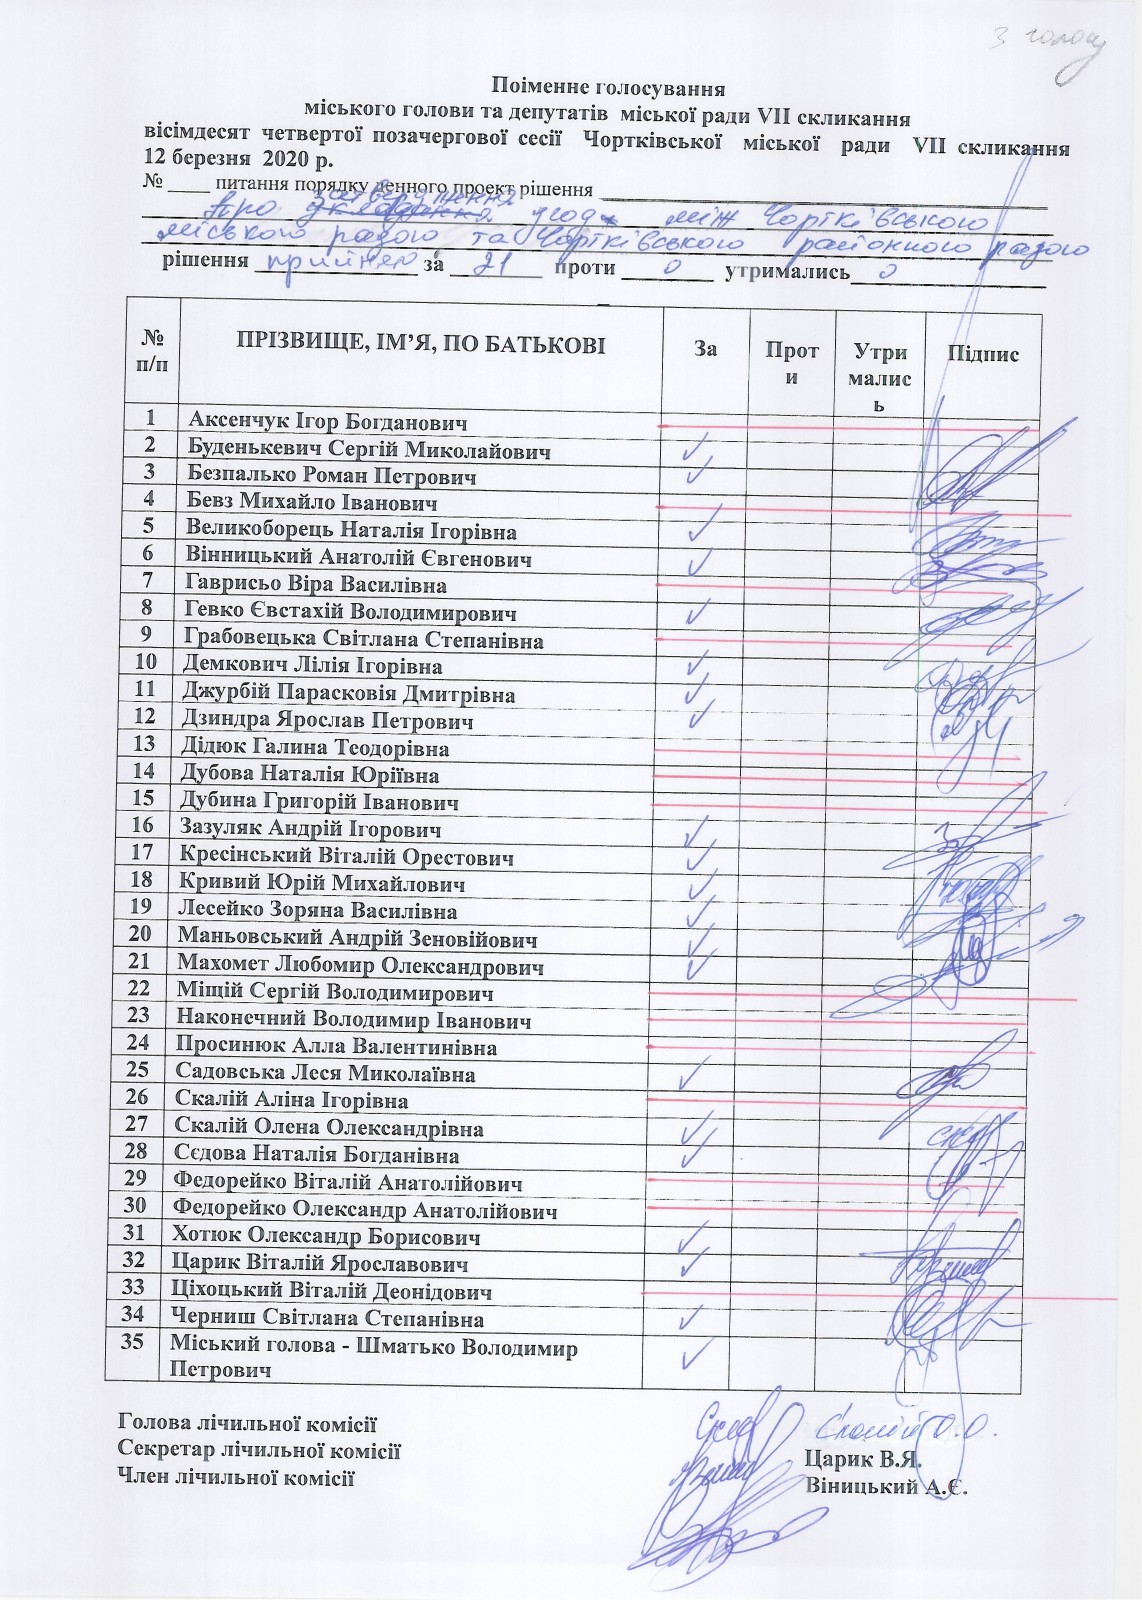 З голосу
Поіменне голосування
міського голови та депутатів міської ради VII скликання
вісімдесят четвертої позачергової сесії Чортківської міської ради VII скликання
12 березня 2020 р.
№ ____ питання порядку денного проект рішення
затвердження
Про укладання угоди між Чортківською
міською радою та Чортківською районною радою
рішення прийнято за 21 проти 0 утримались 0
№ п/п ПРІЗВИЩЕ, ІМ’Я, ПО БАТЬКОВІ За Проти Утримались Підпис
1 Аксенчук Ігор Богданович
2 Буденькевич Сергій Миколайович ✓
3 Безпалько Роман Петрович ✓
4 Бевз Михайло Іванович
5 Великоборець Наталія Ігорівна ✓
6 Вінницький Анатолій Євгенович ✓
7 Гаврисьо Віра Василівна
8 Гевко Євстахій Володимирович ✓
9 Грабовецька Світлана Степанівна
10 Демкович Лілія Ігорівна ✓
11 Джурбій Парасковія Дмитрівна ✓
12 Дзиндра Ярослав Петрович ✓
13 Дідюк Галина Теодорівна
14 Дубова Наталія Юріївна
15 Дубина Григорій Іванович
16 Зазуляк Андрій Ігорович ✓
17 Кресінський Віталій Орестович ✓
18 Кривий Юрій Михайлович ✓
19 Лесейко Зоряна Василівна ✓
20 Маньовський Андрій Зеновійович ✓
21 Махомет Любомир Олександрович ✓
22 Міщій Сергій Володимирович
23 Наконечний Володимир Іванович
24 Просинюк Алла Валентинівна
25 Садовська Леся Миколаївна ✓
26 Скалій Аліна Ігорівна
27 Скалій Олена Олександрівна ✓
28 Сєдова Наталія Богданівна ✓
29 Федорейко Віталій Анатолійович
30 Федорейко Олександр Анатолійович
31 Хотюк Олександр Борисович ✓
32 Царик Віталій Ярославович ✓
33 Ціхоцький Віталій Деонідович
34 Черниш Світлана Степанівна ✓
35 Міський голова - Шматько Володимир ✓
Петрович
Голова лічильної комісії Скалій О.О.
Секретар лічильної комісії Царик В.Я.
Член лічильної комісії Віницький А.Є.